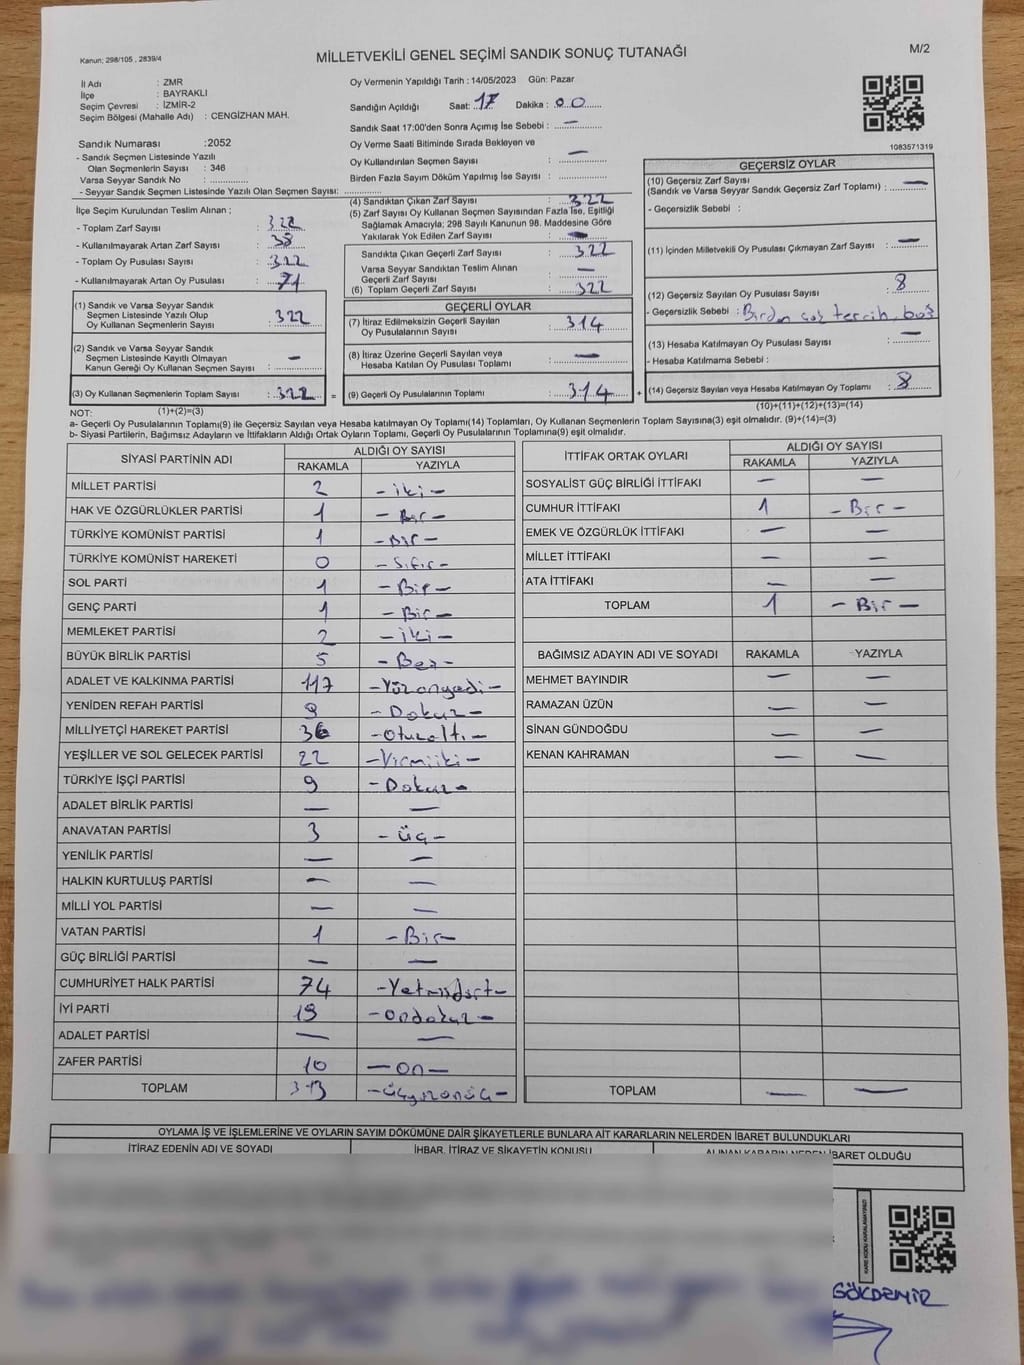 Kanun; 298/105 , 2839/4
MİLLETVEKİLİ GENEL SEÇİMİ SANDIK SONUÇ TUTANAĞI
M/2
İl Adı : ZMR
İlçe : BAYRAKLI
Seçim Çevresi : İZMİR-2
Seçim Bölgesi (Mahalle Adı) : CENGİZHAN MAH.
Oy Vermenin Yapıldığı Tarih : 14/05/2023 Gün: Pazar
Sandığın Açıldığı Saat: 17 Dakika : 00
Sandık Saat 17:00'den Sonra Açımış İse Sebebi : —
Oy Verme Saati Bitiminde Sırada Bekleyen ve
Oy Kullandırılan Seçmen Sayısı : —
Birden Fazla Sayım Döküm Yapılmış İse Sayısı :
1083571319
Sandık Numarası :2052
- Sandık Seçmen Listesinde Yazılı
Olan Seçmenlerin Sayısı : 346
Varsa Seyyar Sandık No :
- Seyyar Sandık Seçmen Listesinde Yazılı Olan Seçmen Sayısı:
İlçe Seçim Kurulundan Teslim Alınan ;
- Toplam Zarf Sayısı :
- Kullanılmayarak Artan Zarf Sayısı : 38
- Toplam Oy Pusulası Sayısı : 322
- Kullanılmayarak Artan Oy Pusulası : 71
(1) Sandık ve Varsa Seyyar Sandık
Seçmen Listesinde Yazılı Olup
Oy Kullanan Seçmenlerin Sayısı : 322
(2) Sandık ve Varsa Seyyar Sandık
Seçmen Listesinde Kayıtlı Olmayan
Kanun Gereği Oy Kullanan Seçmen Sayısı : —
(3) Oy Kullanan Seçmenlerin Toplam Sayısı : 322 =
(4) Sandıktan Çıkan Zarf Sayısı : 322
(5) Zarf Sayısı Oy Kullanan Seçmen Sayısından Fazla İse, Eşitliği
Sağlamak Amacıyla; 298 Sayılı Kanunun 98. Maddesine Göre
Yakılarak Yok Edilen Zarf Sayısı : —
Sandıkta Çıkan Geçerli Zarf Sayısı : 322
Varsa Seyyar Sandıktan Teslim Alınan
Geçerli Zarf Sayısı : —
(6) Toplam Geçerli Zarf Sayısı : 322
GEÇERLİ OYLAR
(7) İtiraz Edilmeksizin Geçerli Sayılan
Oy Pusulasının Sayısı : 314
(8) İtiraz Üzerine Geçerli Sayılan veya
Hesaba Katılan Oy Pusulası Toplamı : —
(9) Geçerli Oy Pusulalarının Toplamı : 314 +
GEÇERSİZ OYLAR
(10) Geçersiz Zarf Sayısı
(Sandık ve Varsa Seyyar Sandık Geçersiz Zarf Toplamı) : —
- Geçersizlik Sebebi :
(11) İçinden Milletvekili Oy Pusulası Çıkmayan Zarf Sayısı : —
(12) Geçersiz Sayılan Oy Pusulası Sayısı : 8
- Geçersizlik Sebebi : Birden çok tercih, boş
(13) Hesaba Katılmayan Oy Pusulası Sayısı : —
- Hesaba Katılmama Sebebi :
(14) Geçersiz Sayılan veya Hesaba Katılmayan Oy Toplamı : 8
(1)+(2)=(3)
(10)+(11)+(12)+(13)=(14)
NOT:
a- Geçerli Oy Pusulalarının Toplamı(9) ile Geçersiz Sayılan veya Hesaba katılmayan Oy Toplamı(14) Toplamları, Oy Kullanan Seçmenlerin Toplam Sayısına(3) eşit olmalıdır. (9)+(14)=(3)
b- Siyasi Partilerin, Bağımsız Adayların ve İttifakların Aldığı Ortak Oyların Toplamı, Geçerli Oy Pusulalarının Toplamına(9) eşit olmalıdır.
SİYASİ PARTİNİN ADI ALDIĞI OY SAYISI
RAKAMLA YAZIYLA
MİLLET PARTİSİ 2 -iki-
HAK VE ÖZGÜRLÜKLER PARTİSİ 1 -Bir-
TÜRKİYE KOMÜNİST PARTİSİ 1 -Bir-
TÜRKİYE KOMÜNİST HAREKETİ 0 -Sıfır-
SOL PARTİ 1 -Bir-
GENÇ PARTİ 1 -Bir-
MEMLEKET PARTİSİ 2 -iki-
BÜYÜK BİRLİK PARTİSİ 5 -Beş-
ADALET VE KALKINMA PARTİSİ 117 -Yüzonyedi-
YENİDEN REFAH PARTİSİ 9 -Dokuz-
MİLLİYETÇİ HAREKET PARTİSİ 36 -Otuzaltı-
YEŞİLLER VE SOL GELECEK PARTİSİ 22 -Yirmiiki-
TÜRKİYE İŞÇİ PARTİSİ 9 -Dokuz-
ADALET BİRLİK PARTİSİ — —
ANAVATAN PARTİSİ 3 -üç-
YENİLİK PARTİSİ — —
HALKIN KURTULUŞ PARTİSİ — —
MİLLİ YOL PARTİSİ — —
VATAN PARTİSİ 1 -Bir-
GÜÇ BİRLİĞİ PARTİSİ — —
CUMHURİYET HALK PARTİSİ 74 -Yetmişdört-
İYİ PARTİ 19 -Ondokuz-
ADALET PARTİSİ — —
ZAFER PARTİSİ 10 -On-
TOPLAM 313 -üçyüzonüç-
İTTİFAK ORTAK OYLARI ALDIĞI OY SAYISI
RAKAMLA YAZIYLA
SOSYALİST GÜÇ BİRLİĞİ İTTİFAKI — —
CUMHUR İTTİFAKI 1 -Bir-
EMEK VE ÖZGÜRLÜK İTTİFAKI — —
MİLLET İTTİFAKI — —
ATA İTTİFAKI — —
TOPLAM 1 -Bir-
BAĞIMSIZ ADAYIN ADI VE SOYADI RAKAMLA YAZIYLA
MEHMET BAYINDIR — —
RAMAZAN ÜZÜN — —
SİNAN GÜNDOĞDU — —
KENAN KAHRAMAN — —
TOPLAM — —
OYLAMA İŞ VE İŞLEMLERİNE VE OYLARIN SAYIM DÖKÜMÜNE DAİR ŞİKAYETLERLE BUNLARA AİT KARARLARIN NELERDEN İBARET BULUNDUKLARI
İTİRAZ EDENİN ADI VE SOYADI İHBAR, İTİRAZ VE ŞİKAYETİN KONUSU ALINAN KARARIN NEDEN İBARET OLDUĞU
KARE KODU KARALAMAYINIZ!
GÖKDEMİR